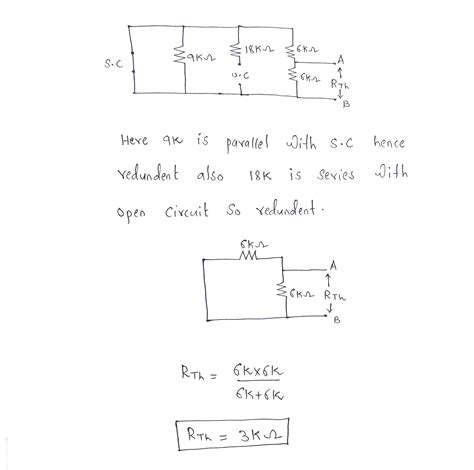 S.C
9KΩ
18KΩ
6KΩ
A
O.C
6KΩ
RTh
B
Here 9K is parallel with S.C hence
redundent also 18K is series with
open circuit so redundent.
6KΩ
A
6KΩ
RTh
B
RTh = 6K×6K
6K+6K
RTh = 3KΩ